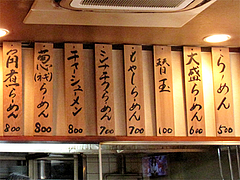 らーめん 500
大盛らーめん 600
替玉 100
もやしらーめん 700
シナチクらーめん 700
チャーシューメン 800
葱(ねぎ)らーめん 800
角煮らーめん 800